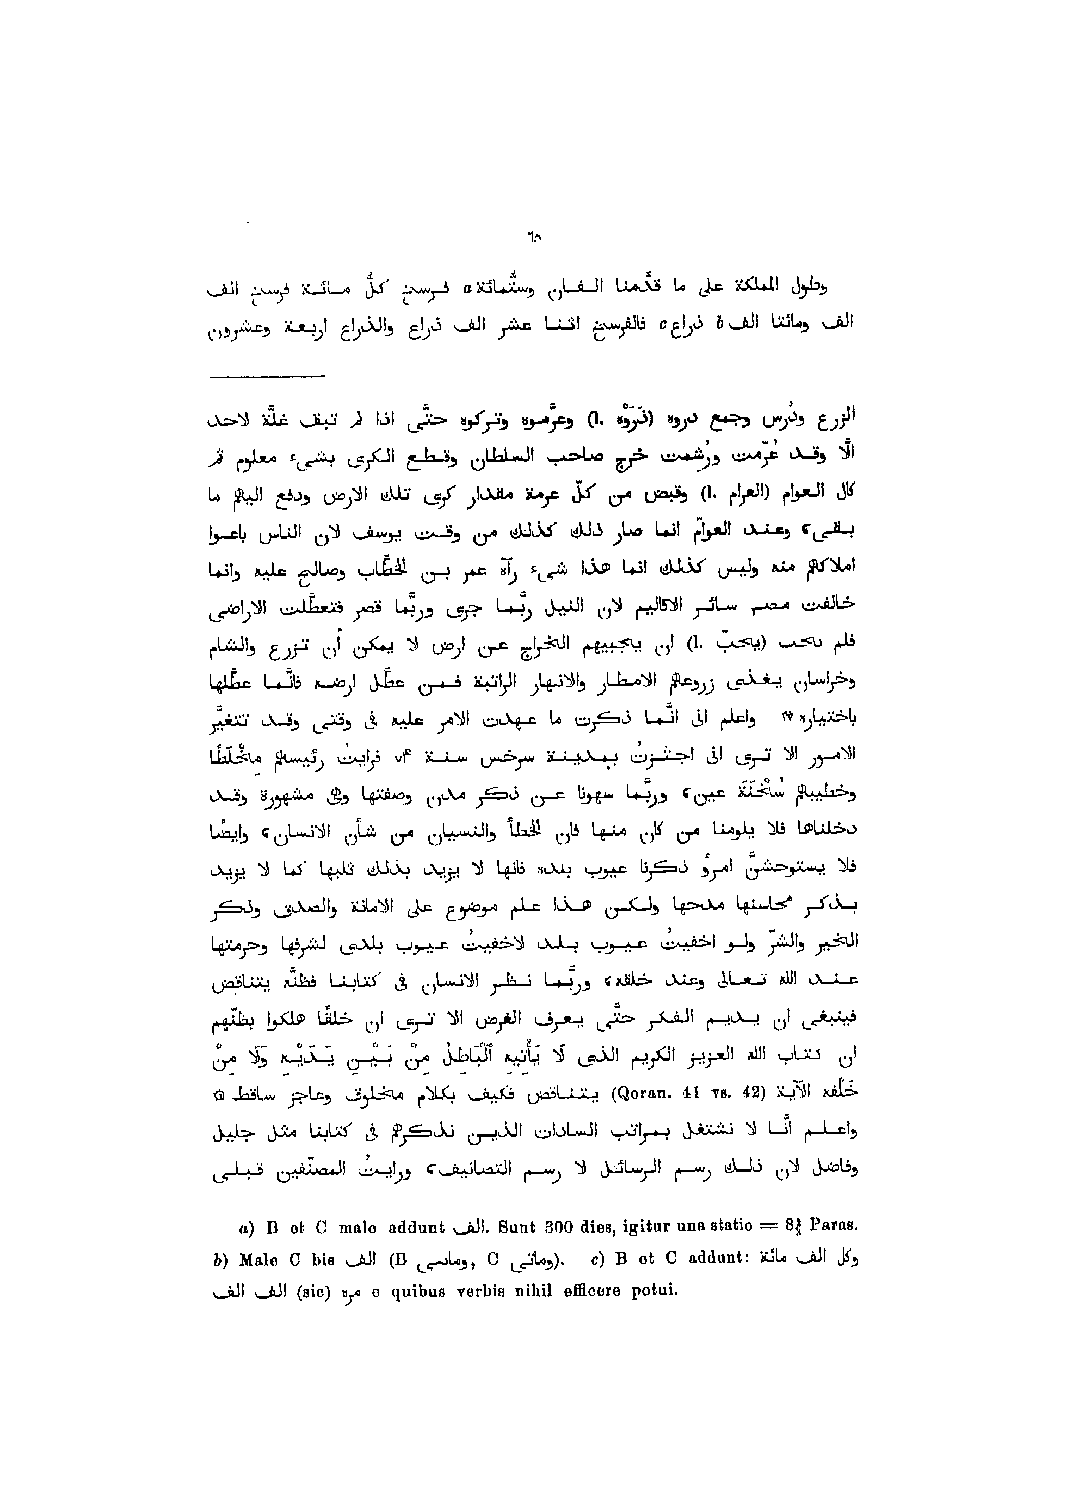 ٦٥
وطول المملكة على ما قدّمنا الـفـان وستّمائة a فرسخ كلّ مـائـة فرسخ الف
الف ومائتا الف b ذراع c فالفرسخ اثنـا عشر الف ذراع والذراع اربعـة وعشرون
الزرع ودُرس وجمع دروه (ذَرَّوْه l.) وعرَّموه وتركوه حتَّى اذا لم تبقَ غلّة لاحد
الّا وقـد عُرّمت ورُشمت خرج صاحب السلطان وقـطـع الكرى بشىء معلوم ثم
كال العوام (العرام l.) وقبض من كلّ عرمة مقدار كرى تلك الارض ودفع اليهم ما
بـقـى، وعـنـد العوامّ انما صار ذلك كذلك من وقـت يوسف لان الناس باعوا
املاكهم منه وليس كذلك انما هذا شىء رآه عمر بـن الخطّاب وصالح عليه وانما
خالفت مصر سائر الاقاليم لان النيل ربّما جرى وربَّما قصر فتعطَّلت الاراضى
فلم يحب (يجبْ l.) ان يجبيهم الخراج عـن ارض لا يمكن أن تزرع والشام
وخراسان يغذى زروعهم الامطار والانهار الراتبة فـمـن عطّل ارضـه فانَّما عطّلها
باختياره، واعلم انى انَّما ذكرت ما عـهـدت الامر عليه فى وقتى وقـد تتغيَّر
الامـور الا تـرى انى اجتـزتُ بـمـديـنـة سرخس سـنـة ٧۴ فرايت رئيسهم مخَلّطًا
وخطيبهم سُخْنَةَ عين، وربَّـمـا سهونا عـن ذكـر مدن وصفتها وهى مشهورة وقـد
دخلناها فلا يلومنا من كان منها فان الخطأ والنسيان من شأن الانسان، وايضًا
فلا يستوحشنَّ امرؤ ذكـرنا عيوب بلده فانها لا يزيد بذلك ثلبها كما لا يزيد
بـذكـر محاسنها مدحها ولـكـن هـذا علم موضوع على الامانة والصدق وذكـر
الخير والشرّ ولـو اخفيتُ عـيـوب بـلـد لاخفيتُ عـيـوب بلدى لشرفها وحرمتها
عـنـد اللّه تـعـالى وعند خلقه، وربَّـمـا نـظـر الانسان فى كتابـنـا فظنّه يتناقض
فينبغى ان يـديـم الفكر حتَّى يعرف الغرض الا تـرى ان خلقًا هلكوا بظنّهم
ان كتاب اللّه العزيز الكريم الذى لَا يَأْتِيهِ ٱلْبَاطِلُ مِنْ بَـيْـنِ يَـدَيْـهِ وَلَا مِنْ
خَلْفِهِ الآية (Qoran. 41 vs. 42) يـتـنـاقض فكيف بكلام مخلوق وعاجز ساقط ۞
واعـلـم أنَّـا لا نشتغل بـمـراتب السادات الذيـن نـذكـرهم فى كتابنا مثل جليل
وفاضل لان ذلـك رسـم الرسائل لا رسـم التصانيف، ورايتُ المصنّفين قبـلـى
a) B et C male addunt الف. Sunt 300 dies, igitur una statio = 8⅔ Paras.
b) Male C bis الف (B وماسى, C ومائى). c) B et C addunt: وكل الف مائة
الف الف (sic) مره e quibus verbis nihil efficere potui.